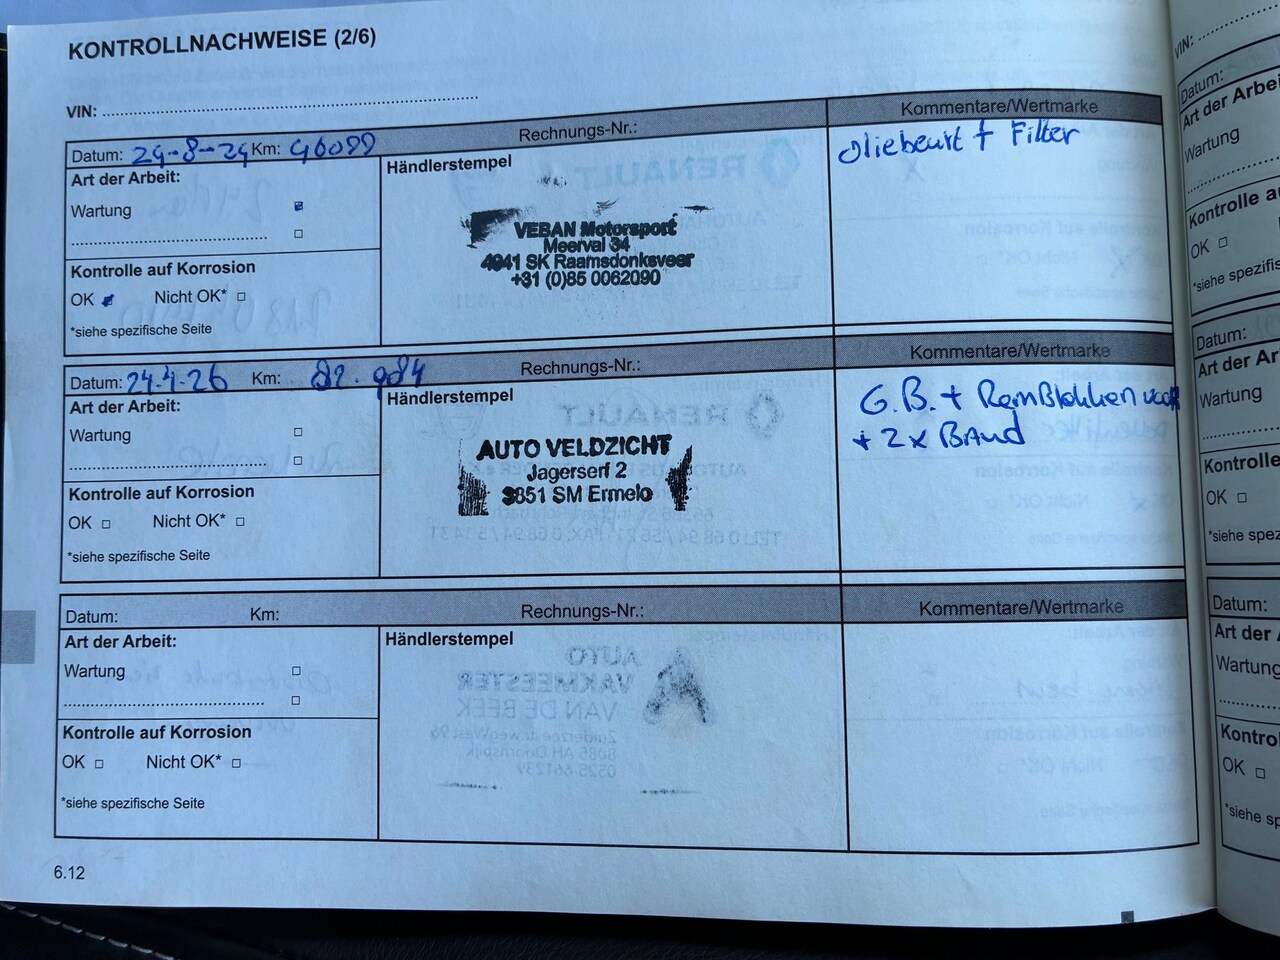 KONTROLLNACHWEISE (2/6)
VIN:
Datum: 29-8-24 Km: 96099 Rechnungs-Nr.: Kommentare/Wertmarke
Art der Arbeit:
Wartung
Kontrolle auf Korrosion
OK Nicht OK*
*siehe spezifische Seite
Händlerstempel
VEBAN Motorsport
Meerval 34
4941 SK Raamsdonksveer
+31 (0)85 0062090
oliebeurt + Filter
Datum: 24.4.26 Km: Rechnungs-Nr.: Kommentare/Wertmarke
Art der Arbeit:
Wartung
Kontrolle auf Korrosion
OK Nicht OK*
*siehe spezifische Seite
Händlerstempel
AUTO VELDZICHT
Jagerserf 2
3851 SM Ermelo
G.B. + Remblokken voor
+ 2x BAND
Datum: Km: Rechnungs-Nr.: Kommentare/Wertmarke
Art der Arbeit:
Wartung
Kontrolle auf Korrosion
OK Nicht OK*
*siehe spezifische Seite
Händlerstempel
6.12
VIN:
Datum:
Wartung
OK
Datum:
Wartung
Kontrolle
OK
Datum:
Wartung
OK